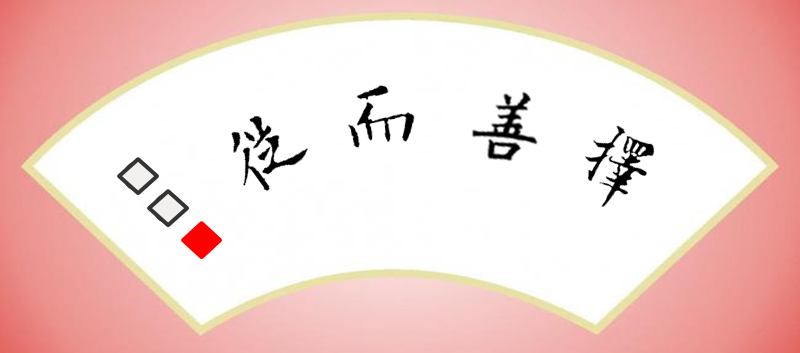 擇善而從